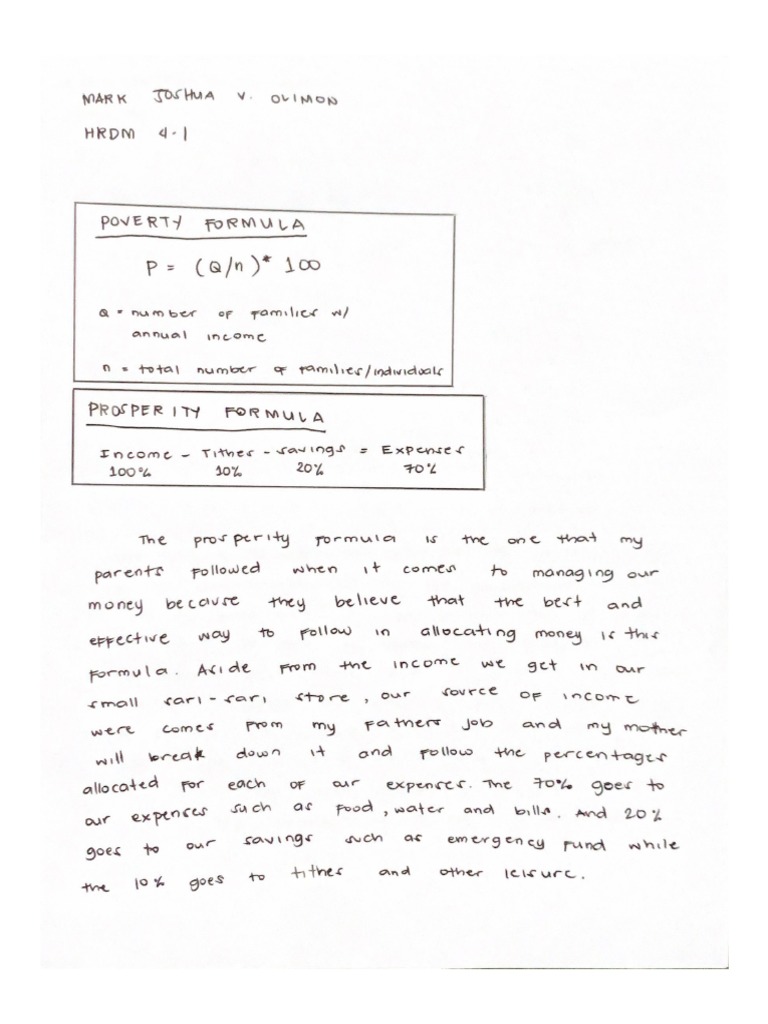 MARK JOSHUA V. OLIMON
HRDM 4-1
POVERTY FORMULA
P = (Q/n)* 100
Q = number of families w/
annual income
n = total number of families/individuals
PROSPERITY FORMULA
Income - Tithes - savings = Expenses
100% 10% 20% 70%
The prosperity formula is the one that my
parents followed when it comes to managing our
money because they believe that the best and
effective way to follow in allocating money is this
formula. Aside from the income we get in our
small sari-sari store, our source of income
were comes from my fathers job and my mother
will break down it and follow the percentages
allocated for each of our expenses. The 70% goes to
our expenses such as food, water and bills. And 20%
goes to our savings such as emergency fund while
the 10% goes to tithes and other leisure.